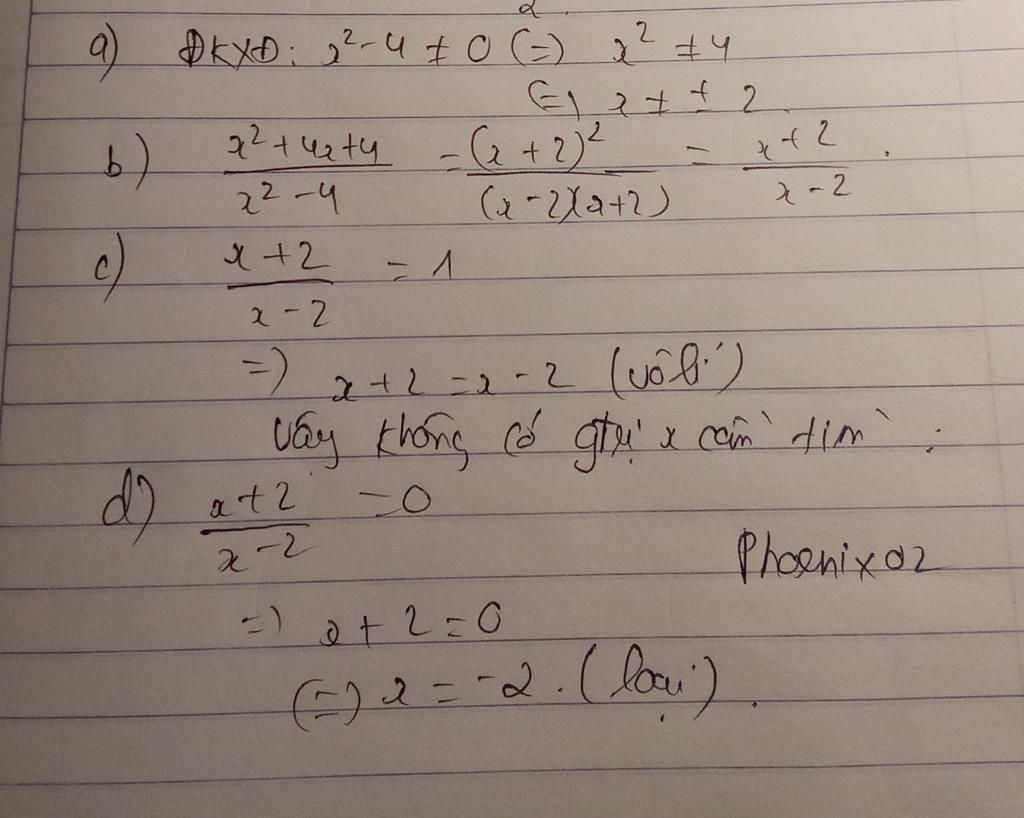 a) ĐKXĐ: x² - 4 ≠ 0 (=) x² ≠ 4
(=) x ≠ ± 2
b) \frac{x² + 4x + 4}{x² - 4} = \frac{(x + 2)²}{(x - 2)(x + 2)} = \frac{x + 2}{x - 2}.
c) \frac{x + 2}{x - 2} = 1
=) x + 2 = x - 2 (vô lí)
Vậy không có gtrị x cần tìm.
d) \frac{x + 2}{x - 2} = 0
Phoenix02
=) x + 2 = 0
(=) x = -2. (loại).